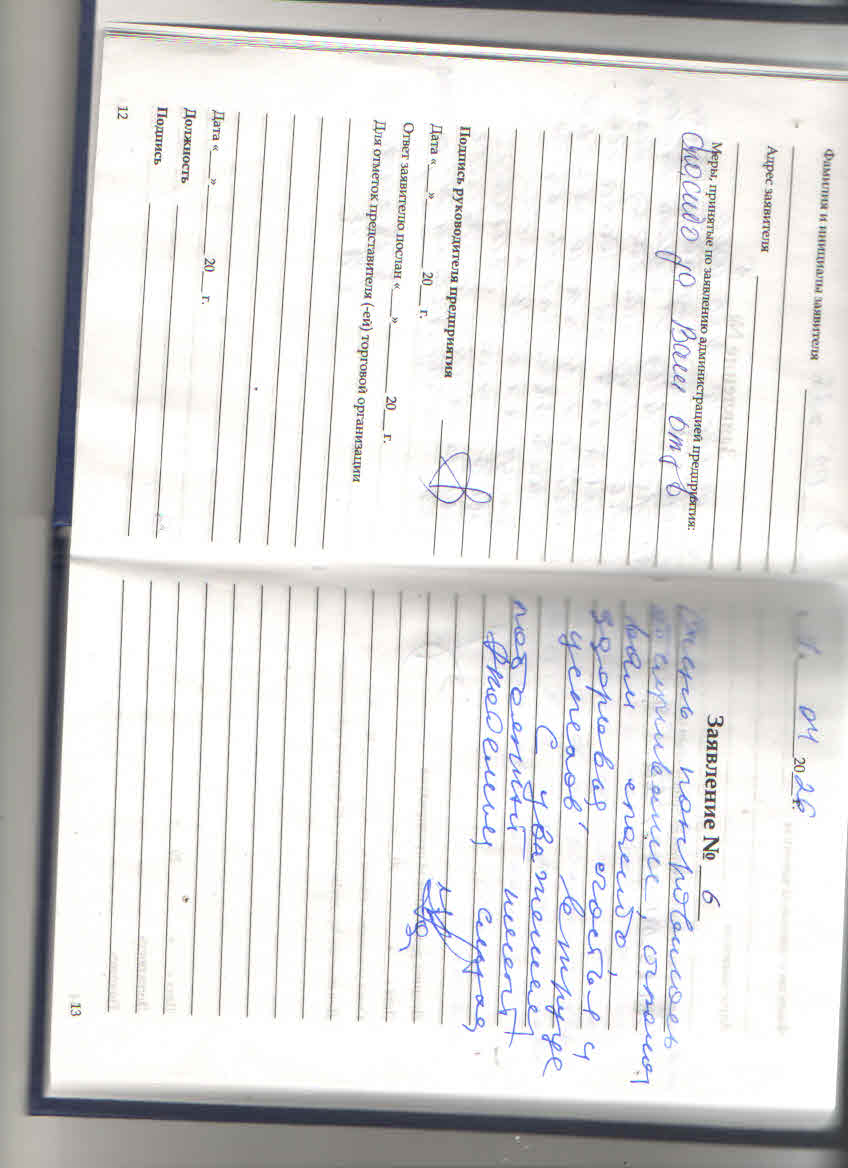 Фамилия и инициалы заявителя
Адрес заявителя
Меры, принятые по заявлению администрацией предприятия:
Спасибо за Ваш отзыв
Подпись руководителя предприятия
Дата «___» ________ 20__ г.
Ответ заявителю послан «___» ________ 20__ г.
Для отметок представителя (-ей) торговой организации
Дата «___» ________ 20__ г.
Должность
Подпись
12
04 2026 г.
Заявление № 6
Очень понравилось
обслуживание, огромное
вам спасибо
здоровья счастья и
успехов в труде
С уважением,
13